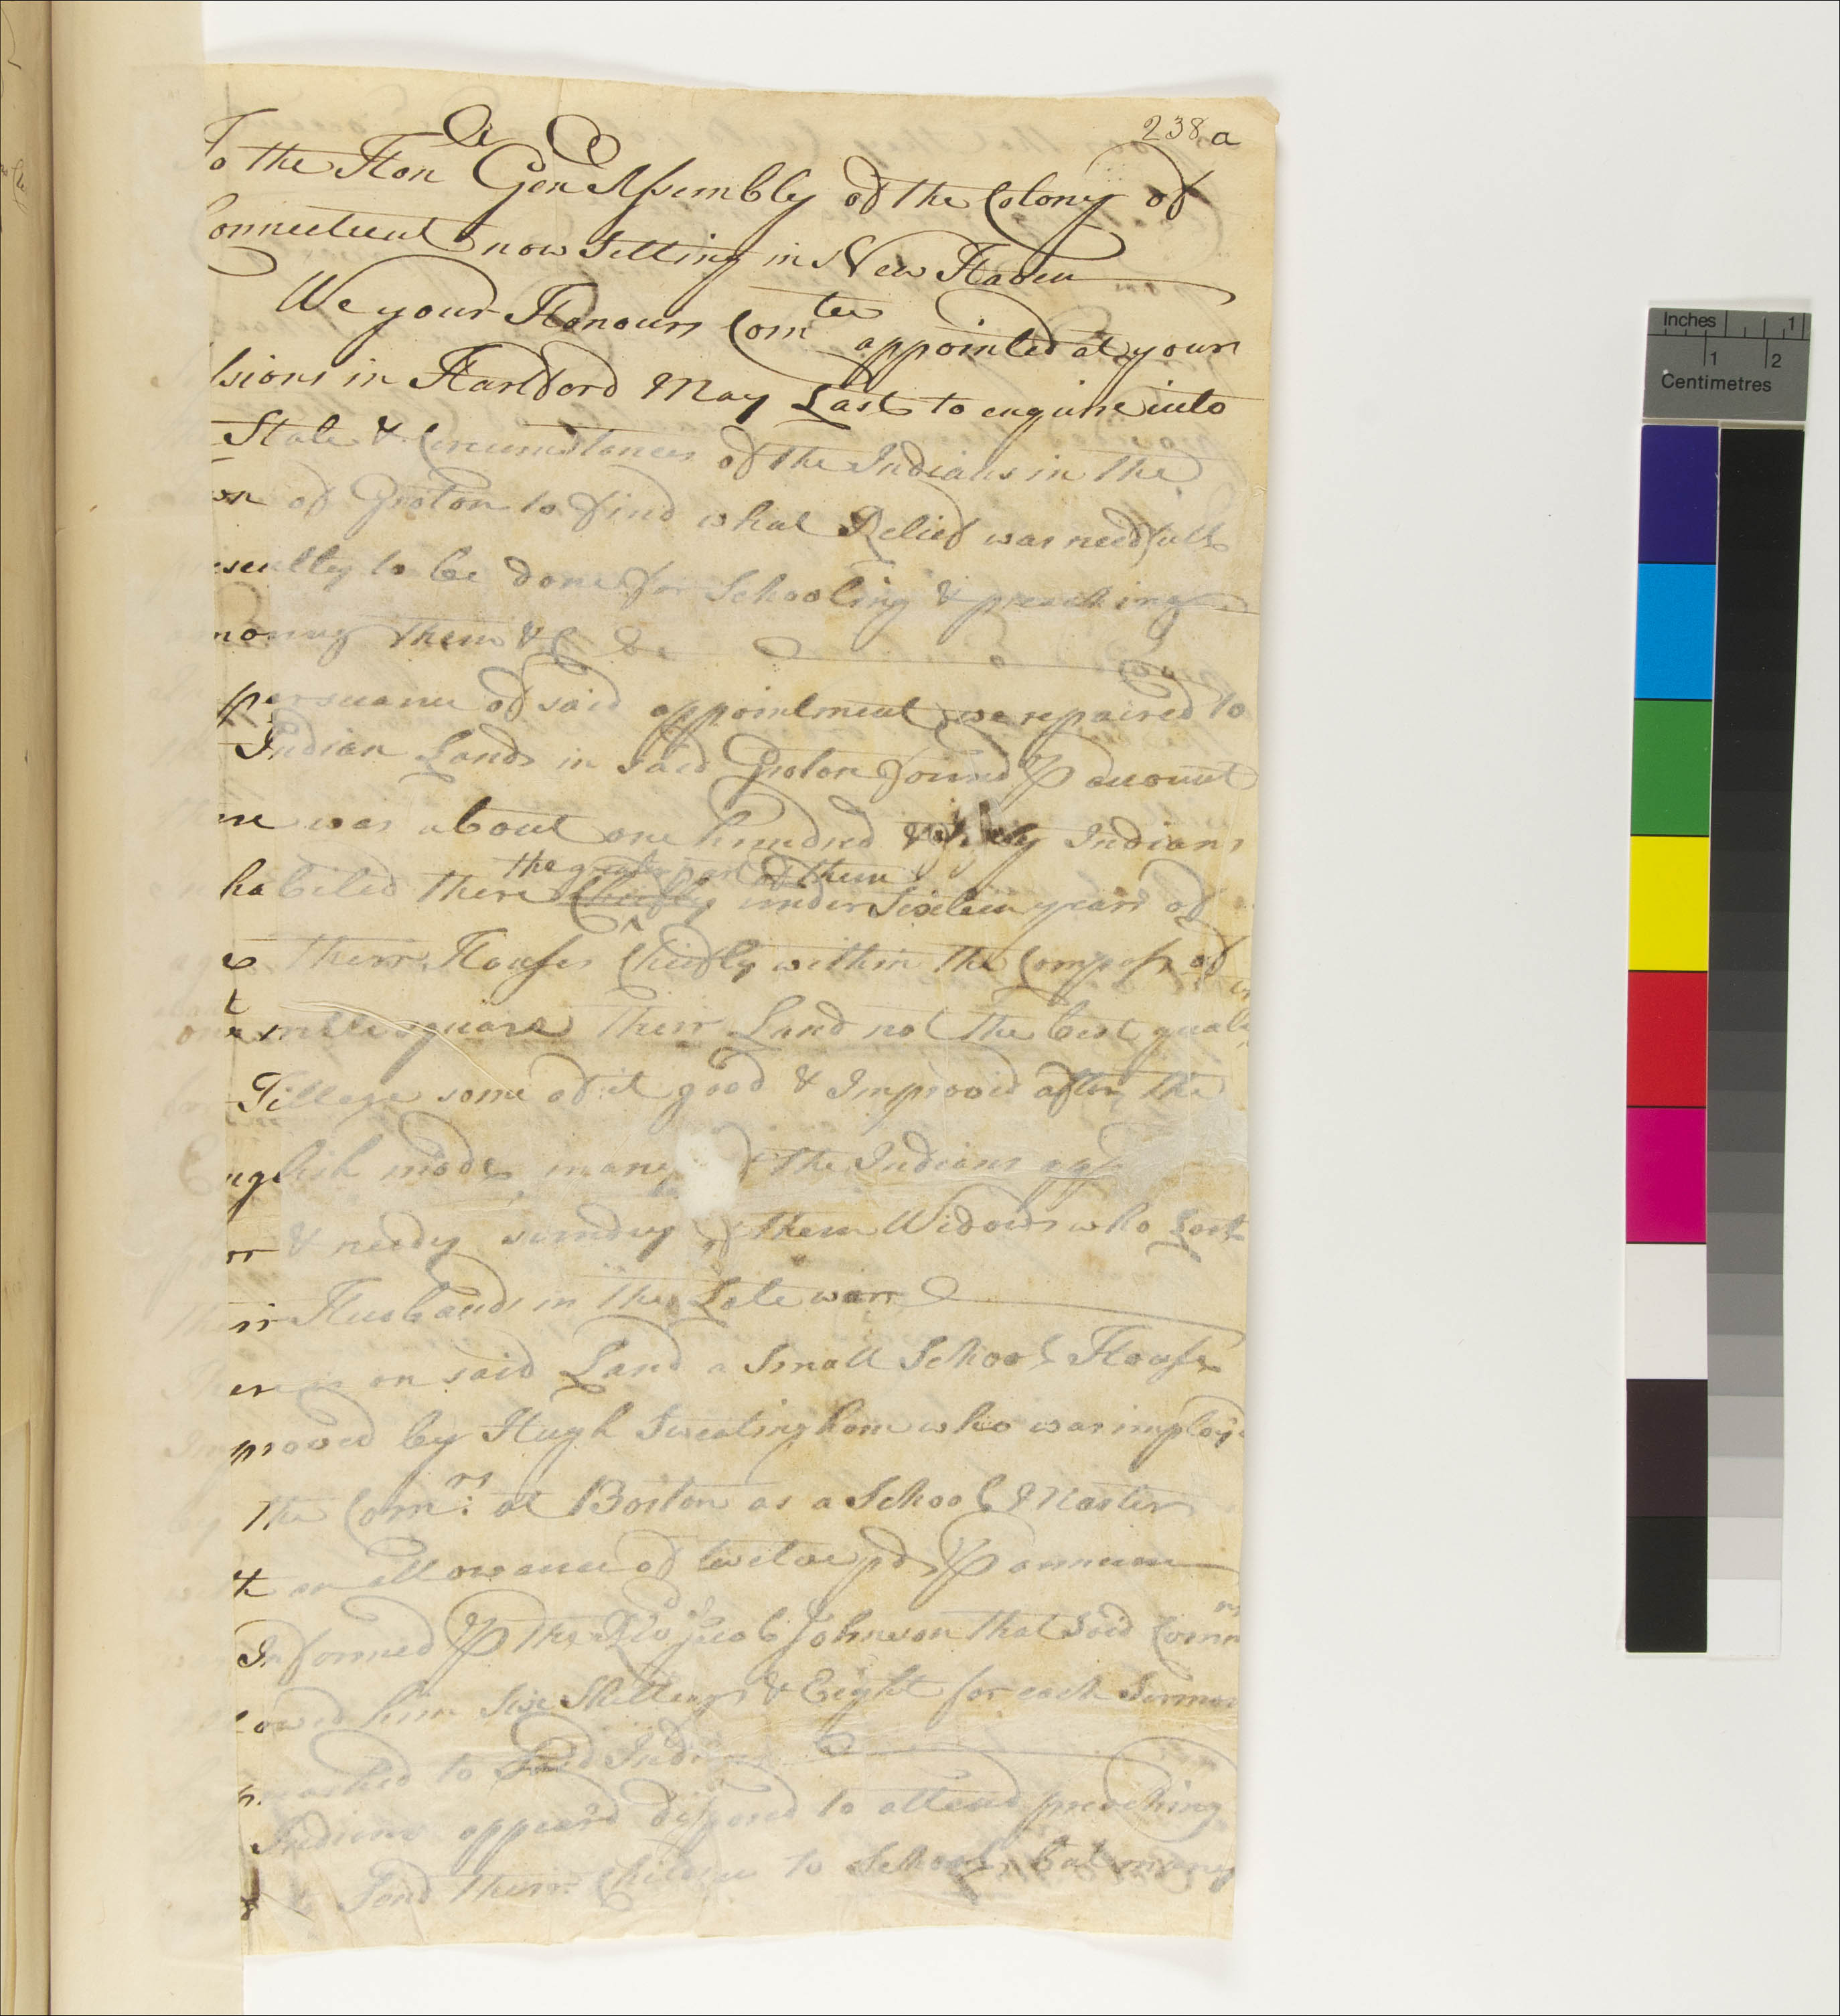 238 a
To the Hon Gen Assembly of the Colony of
Connecticut now Setting in New Haven
We your Honours Comtee appointed at your
sions in Hartford May Last to enquire into
the State & Circumstances of the Indians in the
wn of Groton to find what Relief was needfull
nescesity to be done for Schooling & preaching
among them &c &c
persuance of said appointment we repaired to
the Indian Lands in said Groton found ⅌ account
there was about one hundred & Indians
habited there Chiefly under Sixteen years of
the greater part of them
age their Houses Chiefly within the Compass of
one mile square their Land not the best quali
for Tillage some of it good & Improvid after the
English mode many of the Indians
poor & needy sundry of them Widows who Lost
their Husbands in the Late warr
There is on said Land a Small School House
Improved by Hugh Sweatingham who was imploy'd
by the Comrs: at Boston as a School Master
with an allowance of twelve pds ⅌ annum
Informed ⅌ the Revd Jacob Johnson that said Comrs
lowed him Six Shillings & Eight for each Sermon
preached to said Indians
Indians appeard disposed to attend preaching
& Send their Children to School but many